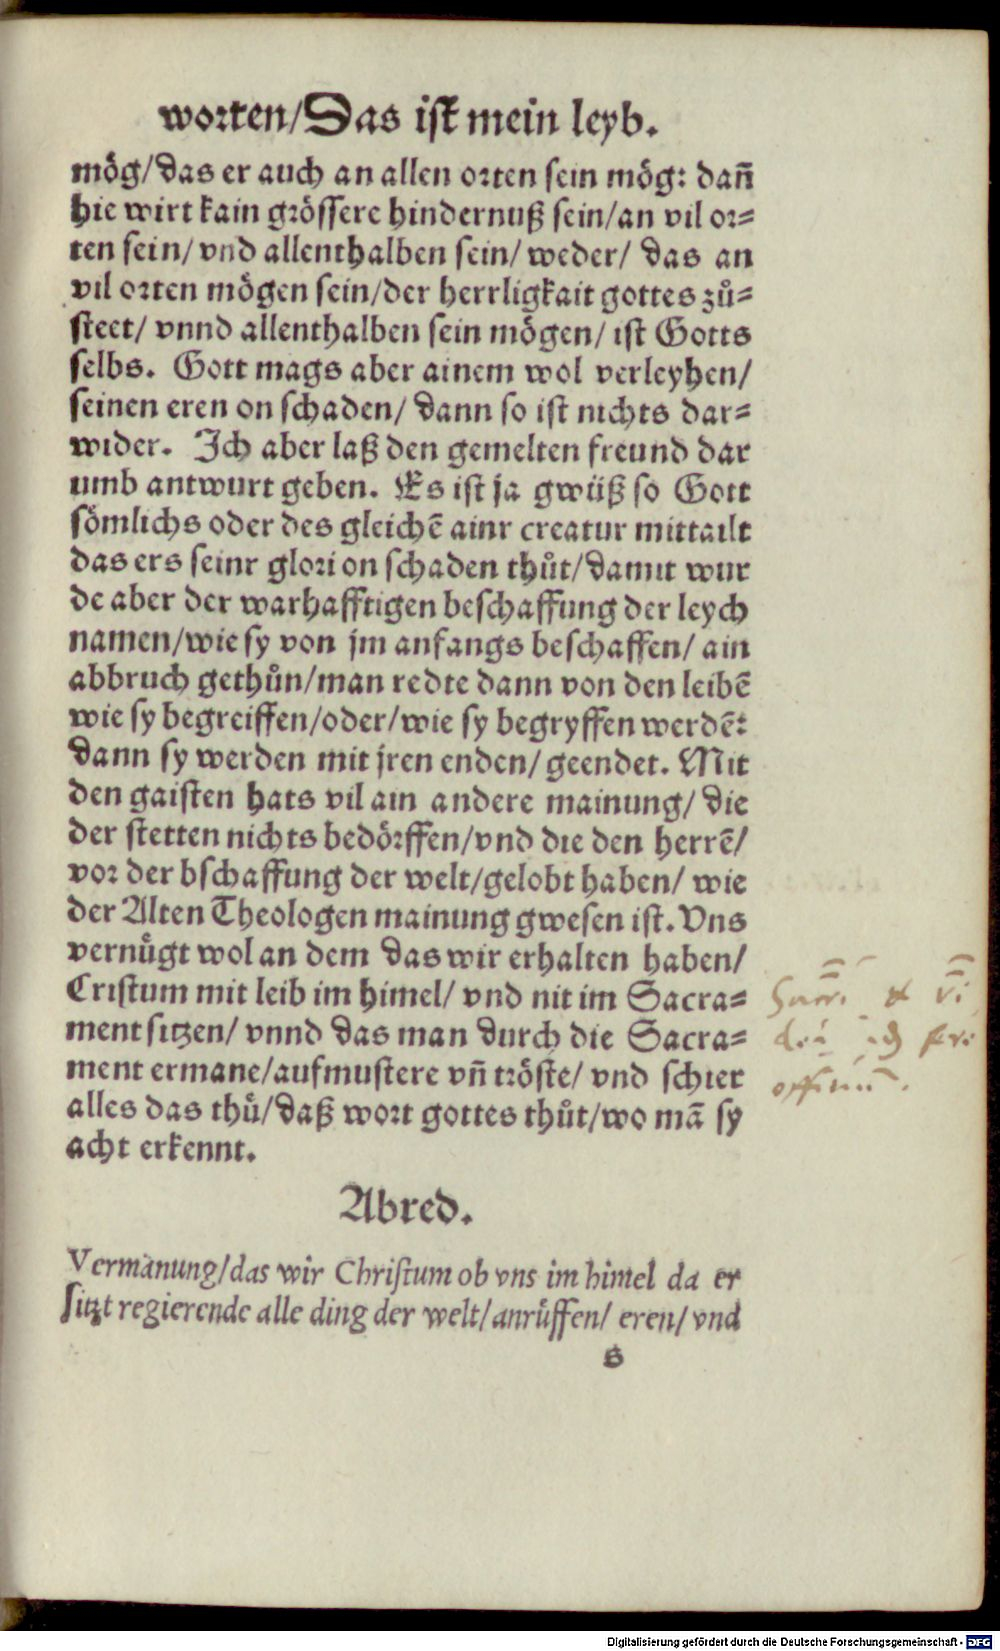 worten/Das ist mein leyb.
mög/das er auch an allen orten sein mög: dañ
hie wirt kain grössere hindernuß sein/an vil or⸗
ten sein/ vnd allenthalben sein/ weder/ das an
vil orten mögen sein/der herrligkait gottes zů⸗
steet/ vnnd allenthalben sein mögen/ ist Gotts
selbs. Gott mags aber ainem wol verleyhen/
seinen eren on schaden/ dann so ist nichts dar⸗
wider. Ich aber laß den gemelten freund dar
umb antwurt geben. Es ist ja gwüß so Gott
sömlichs oder des gleichē ainr creatur mittailt
das ers seinr glori on schaden thůt/damit wur
de aber der warhafftigen beschaffung der leych
namen/wie sy von jm anfangs beschaffen/ ain
abbruch gethůn/man redte dann von den leibē
wie sy begreiffen/oder/wie sy begryffen werdē:
dann sy werden mit jren enden/geendet. Mit
den gaisten hats vil ain andere mainung/ die
der stetten nichts bedörffen/vnd die den herrē/
vor der bschaffung der welt/gelobt haben/ wie
der Alten Theologen mainung gwesen ist. Vns
vernügt wol an dem das wir erhalten haben/
Cristum mit leib im himel/ vnd nit im Sacra⸗
ment sitzen/ vnnd das man durch die Sacra⸗
ment ermane/aufmustere vñ tröste/ vnd schier
alles das thů/daß wort gottes thůt/wo mā sy
acht erkennt.
Abred.
Vermanung/das wir Christum ob vns im himel da er
sitzt regierende alle ding der welt/anrüffen/ eren/ vnd
s
Digitalisierung gefördert durch die Deutsche Forschungsgemeinschaft - DFG